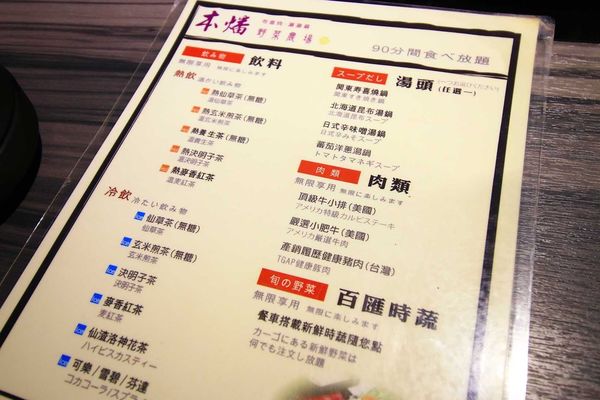 本燔 市農燒 壽康鍋
野菜農場
90分間食べ放題
飲み物 飲料
無限享用 無限に楽しみます
熱飲 温かい飲み物
熱仙草茶(無糖)
温仙草茶
熱玄米煎茶(無糖)
玄米煎茶
熱養生茶(無糖)
温養生茶
熱決明子茶
温決明子茶
熱麥香紅茶
温麦紅茶
冷飲 冷たい飲み物
仙草茶(無糖)
仙草茶
玄米煎茶(無糖)
玄米煎茶
決明子茶
決明子茶
麥香紅茶
麦紅茶
仙渣洛神花茶
ハイビスカスティー
可樂/雪碧/芬達
コカコーラ/スプラ
スープだし 湯頭(任選一)
(一つお選びください)
関東寿喜燒鍋
関東すき焼き鍋
北海道昆布湯鍋
北海道昆布スープ
日式辛味噌湯鍋
日式辛みそスープ
蕃茄洋蔥湯鍋
トマトタマネギスープ
肉類 肉類
無限享用 無限に楽しみます
頂級牛小排(美國)
アメリカ特級カルビステーキ
嚴選小肥牛(美國)
アメリカ厳選牛肉
產銷履歷健康豬肉(台灣)
TGAP健康豚肉
旬の野菜 百匯時蔬
無限享用 無限に楽しみます
餐車搭載新鮮時蔬隨您點
カーゴにある新鮮野菜は
何でも注文し放題